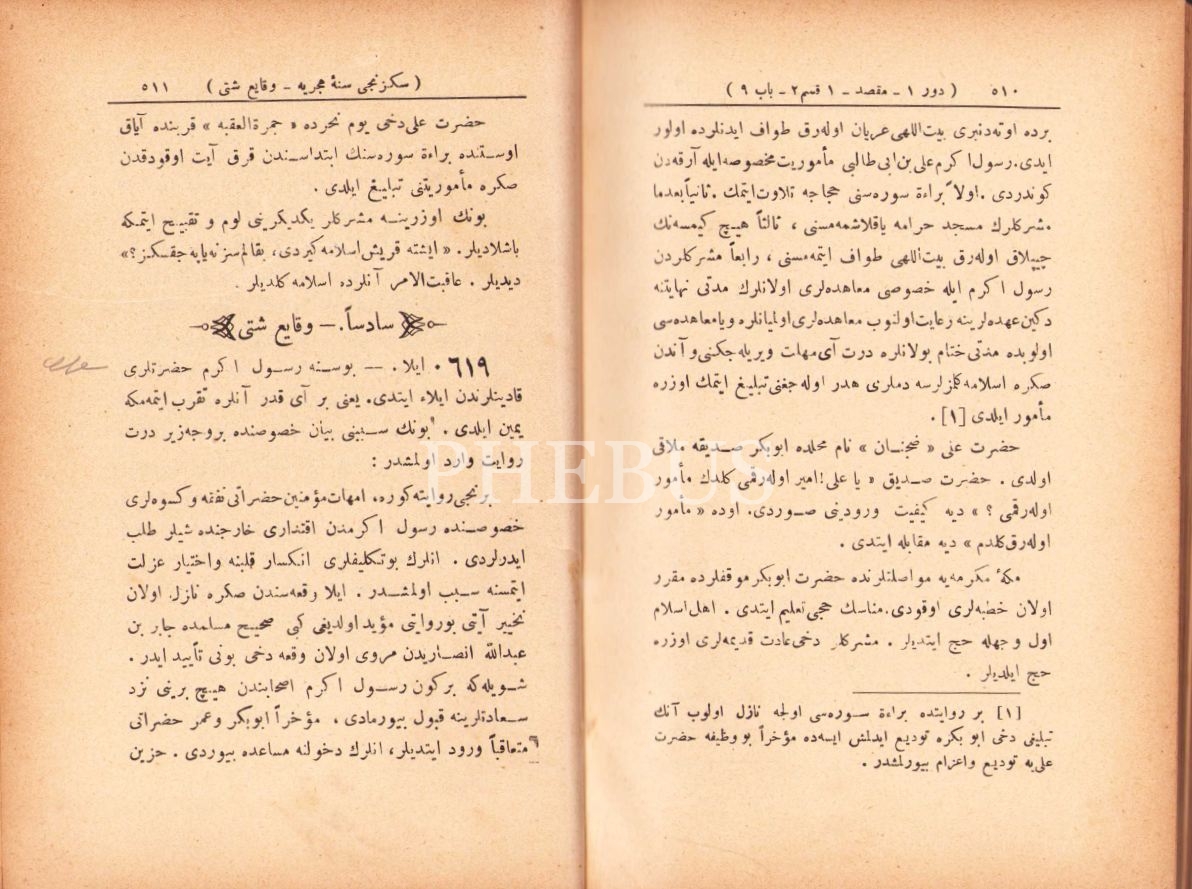 ٥١٠ ( دور ١ ـ مقصد ـ ١ قسم ٢ ـ باب ٩ )
برده اوته‌دنبری بیت‌اللهی عریان اوله‌رق طواف ایدنلرده اولور
ایدی. رسول اکرم علی بن ابی طالبی مأموریت مخصوصه ایله آرقه‌دن
کوندردی. اولاً براءة سوره‌سنی حجاجه تلاوت ایتمك. ثانیاً بعدما
مشرکلرك مسجد حرامه یاقلاشمه‌مسنی ، ثالثاً هیچ کیمسه‌نك
چیپلاق اوله‌رق بیت‌اللهی طواف ایتمه‌مسنی ، رابعاً مشرکلردن
رسول اکرم ایله خصوصی معاهده‌لری اولانلرك مدتی نهایتنه
دکین عهده‌لرینه رعایت اولنوب معاهده‌لری اولمیانلره ویا معاهده‌سی
اولوبده مدتی ختام بولانلره درت آی مهلت ویریله‌جکنی و آندن
صکره اسلامه کلمزلرسه دملری هدر اوله‌جغنی تبلیغ ایتمك اوزره
مأمور ایلدی [١].
حضرت علی « ضجنان » نام محلده ابوبکر صدیقه ملاقی
اولدی . حضرت صدیق « یا علی! امیر اوله‌رقمی کلدك مأمور
اوله‌رقمی ؟ » دیه کیفیت ورودینی صوردی. اوده « مأمور
اوله‌رق کلدم » دیه مقابله ایتدی .
مکهٔ مکرمه‌یه مواصلتلرنده حضرت ابوبکر موقفلرده مقرر
اولان خطبه‌لری اوقودی. مناسك حجی تعلیم ایتدی . اهل اسلام
اول وجهله حج ایتدیلر . مشرکلر دخی عادت قدیمه‌لری اوزره
حج ایلدیلر .
[١] بر روایتده براءة سوره‌سی اولجه نازل اولوب آنك
تبلیغی دخی ابو بکره تودیع ایدلمش ایسه‌ده مؤخراً بو وظیفه حضرت
علی‌یه تودیع واعزام بیورلمشدر .
( سکزنجی سنهٔ هجریه ـ وقایع شتی ) ٥١١
حضرت علی دخی یوم نحرده « جمرة‌العقبه » قربنده آیاق
اوستنده براءة سوره‌سنك ابتداسندن قرق آیت اوقودقدن
صکره مأموریتنی تبلیغ ایلدی .
بونك اوزرینه مشرکلر یکدیکرینی لوم و تقبیح ایتمکه
باشلادیلر. « ایشته قریش اسلامه کیردی، بقالم سز نه یاپه‌جقسکز؟»
دیدیلر . عاقبت‌الامر آنلرده اسلامه کلدیلر .
سادساً . — وقایع شتی
٦١٩ . ایلا . — بوسنه رسول اکرم حضرتلری
قادینلرندن ایلاء ایتدی. یعنی بر آی قدر آنلره تقرب ایتمه‌مکه
یمین ایلدی . بونك سببنی بیان خصوصنده بروجه زیر درت
روایت وارد اولمشدر :
برنجی روایته کوره، امهات مؤمنین حضراتی نفقه و کسوه‌لری
خصوصنده رسول اکرمدن اقتداری خارجنده شیلر طلب
ایدرلردی . انلرك بوتکلیفلری انکسار قلبنه واختیار عزلت
ایتمسنه سبب اولمشدر . ایلا وقعه‌سندن صکره نازل اولان
تخییر آیتی بوروایتی مؤید اولدیغی کبی صحیح مسلمده جابر بن
عبدالله انصاریدن مروی اولان وقعه دخی بونی تأیید ایدر .
شویله‌که برکون رسول اکرم اصحابندن هیچ برینی نزد
سعادتلرینه قبول بیورمادی . مؤخراً ابوبکر وعمر حضراتی
متعاقباً ورود ایتدیلر، انلرك دخولنه مساعده بیوردی . حزین
PHEBUS